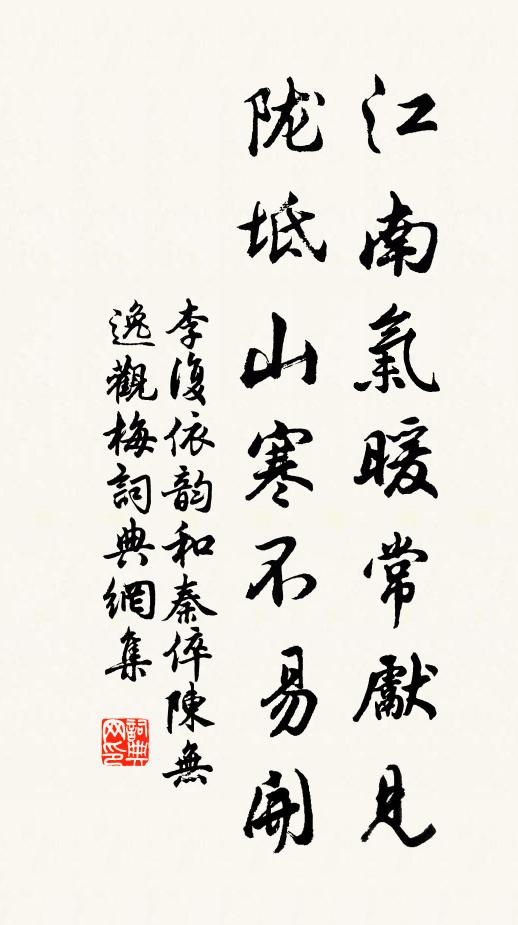 江南氣暖常厭見
陇坻山寒不易開
李復依韵和秦倅陳無
逸觀梅詞典網集
詞典网印